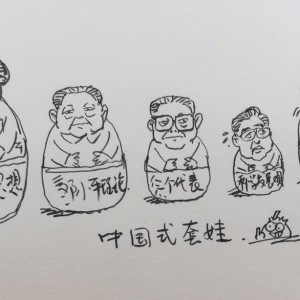 思想
邓小平理论
三个代表
科学发展观
中国式套娃.